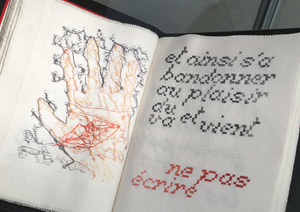 et ainsi s'a
bandonner
au plaisir
du
va et vient
ne pas
écrire